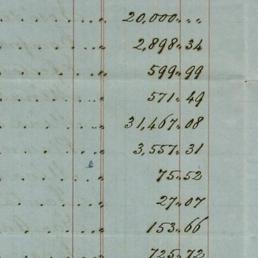 20,000 " "
2,898 " 34
599 " 99
571 " 49
31,467 " 08
3,557 " 31
75 " 52
27 " 07
153 " 66
725 " 72